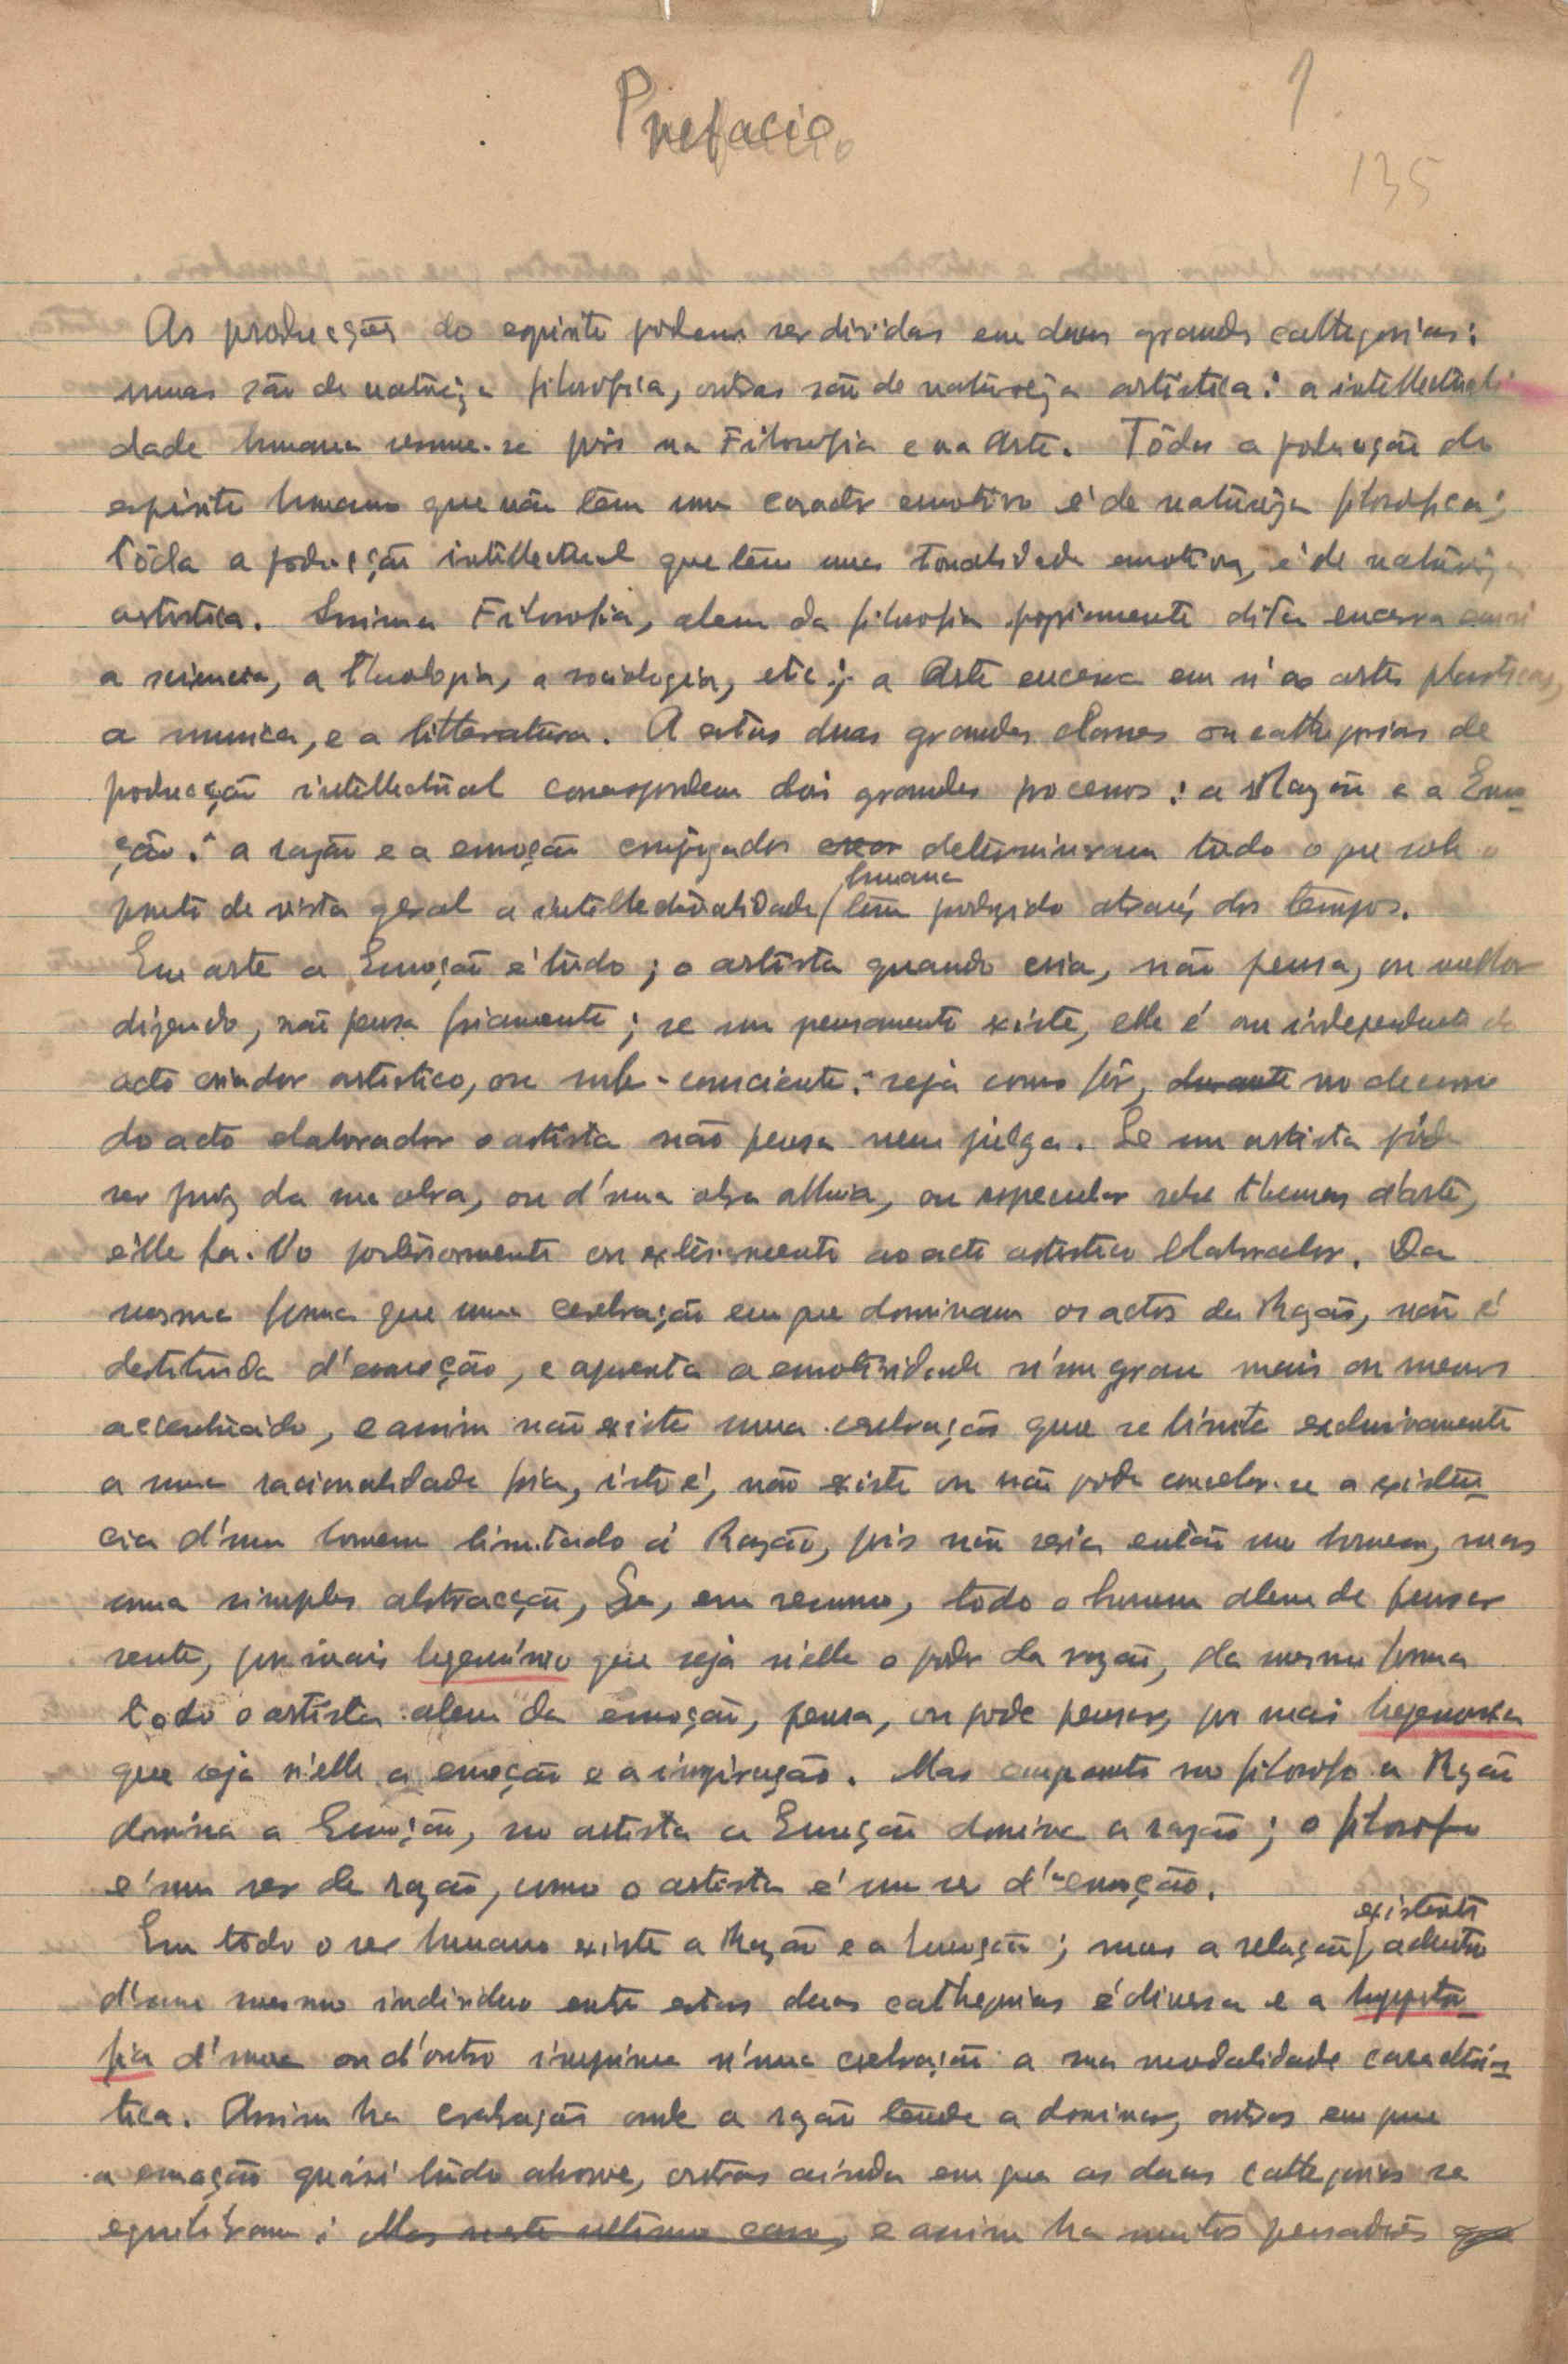 Prefacio
1
135
As producções do espirito podem ser dividas em duas grandes cathegorias:
umas são de natureza filosofica, outras são de natureza artistica: a intellectuali
dade humana resume-se pois na Filosofia e na Arte. Tôda a producção do
espirito humano que não têm um caracter emotivo é de natureza filosofica;
tôda a producção intellectual que têm uma tonalidade emotiva, é de natureza
artistica. Assim a Filosofia, alem da filosofia propriamente dita encerra em si
a sciencia, a theologia, a sociologia, etc; a Arte encerra em si as artes plasticas,
a musica, e a litteratura. A estas duas grandes classes ou cathegorias de
producção intellectual correspondem dois grandes processos: a Razão e a Emo-
ção: a razão e a emoção conjugadas determinaram tudo o que sob o
humana
ponto de vista geral a intellectualidade / têm produzido atravéz dos tempos.
Em arte a Emoção é tudo; o artista quando cria, não pensa, ou melhor
dizendo, não pensa friamente; se um pensamento existe, elle é ou independente do
acto criador artistico, ou sub-consciente: seja como fôr, durante no decorrer
do acto elaborador o artista não pensa nem julga. Se um artista póde
ser juiz da sua obra, ou d'uma obra alheia, ou especular sobre themas d'arte,
élle fa-lo posteriormente ou exteriormente ao acto artistico elaborador. Da
mesma forma que uma cerebração em que dominam os actos da Razão, não é
destituida d'emoção, e apresenta a emotividade n'um grau mais ou menos
accentuado, e assim não existe uma cerebração que se limite exclusivamente
a uma racionalidade fria, isto é, não existe ou não pode conceber-se a existên-
cia d'um homem limitado á Razão, pois não seria então um homem, mas
uma simples abstracção, Se, em resumo, todo o homem alem de pensar
sente, por mais hegemónico que seja n'elle o poder da razão, da mesma forma
todo o artista alem da emoção, pensa, ou pode pensar, por mais hegemonica
que seja n'elle a emoção e a inspiração. Mas emquanto no filosofo a Razão
domina a Emoção, no artista a Emoção domina a razão; o filosofo
é um ser de razão, como o artista é um ser d'emoção.
existente
Em todo o ser humano existe a Razão e a Emoção; mas a relação /, adentro
d'um mesmo individuo entre estas duas cathegorias é diversa e a hypertro-
fia d'uma ou d'outro imprime n'uma cerebração a sua modalidade caracteris-
tica. Assim ha cerebrações onde a razão tende a dominar, outras em que
a emoção quási tudo absorve, outras ainda em que as duas cathegorias se
equilibram; Mas neste ultimo caso, e assim ha muitos pensadores que